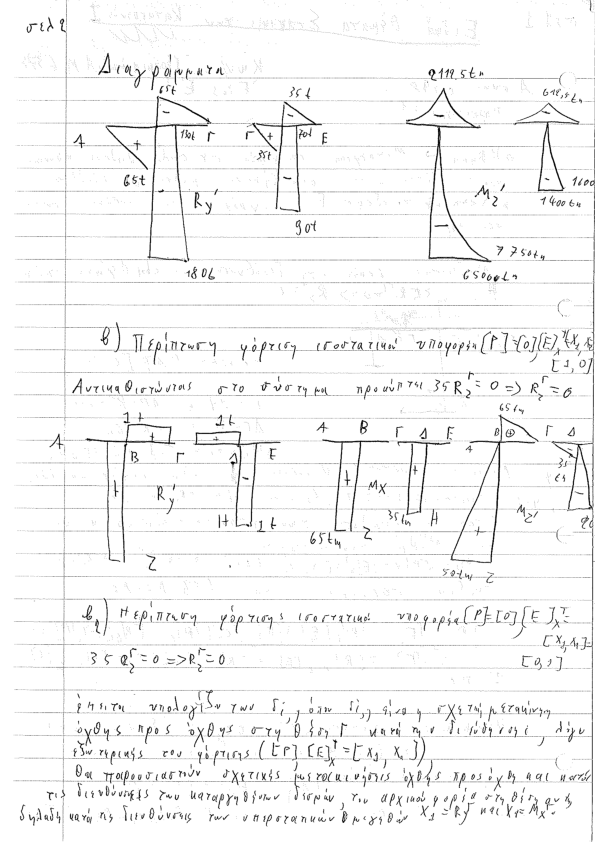 σελ 2
Διαγράμματα
65t 35t 2112,5tm 612,5tm
Α 130t Γ Γ 70t Ε
+ - + 35t
65t Ry' - Mz' - 1400tm
90t
180t 7750tm
65000tm
β) Περίπτωση φόρτιση ισοστατικού υποφορέα [P]=[0], [E]
[1,0]
Αντικαθιστώντας στο σύστημα προκύπτει 35 R₂ᴦ = 0 => R₂ᴦ = 0
1t 1t 65tm
Α + + Α Β Γ Δ Ε Α Β ⊕ Γ Δ
Β Γ Δ Ε + + 35
+ Ry' - Mx 35tm Mz'
Η 1t 65tm Ζ Η +
Ζ 50tm Ζ
β₂) Περίπτωση φόρτισης ισοστατικού υποφορέα [P]=[0] [E]ₓᵀ=
[X₁,X₂]=
35 R₂ᴦ = 0 => R₂ᴦ = 0 [0,1]
έπειτα υπολογίζονται δi, όπου δi, είναι η σχετική μετακίνηση
όχθης προς όχθης στη θέση Γ κατά την διεύθυνση i, λόγω
εξωτερικής του φόρτισης ([P] [E]ₓᵀ = [X₁, X₂])
Θα παρουσιαστούν σχετικές μετακινήσεις όχθης προς όχθη και κατά
τις διευθύνσεις των καταργηθέντων δεσμών, του αρχικού φορέα στη θέση αυτή
δηλαδή κατά τις διευθύνσεις των υπερστατικών μεγεθών X₁ = Ry' και X₁ = Mx'